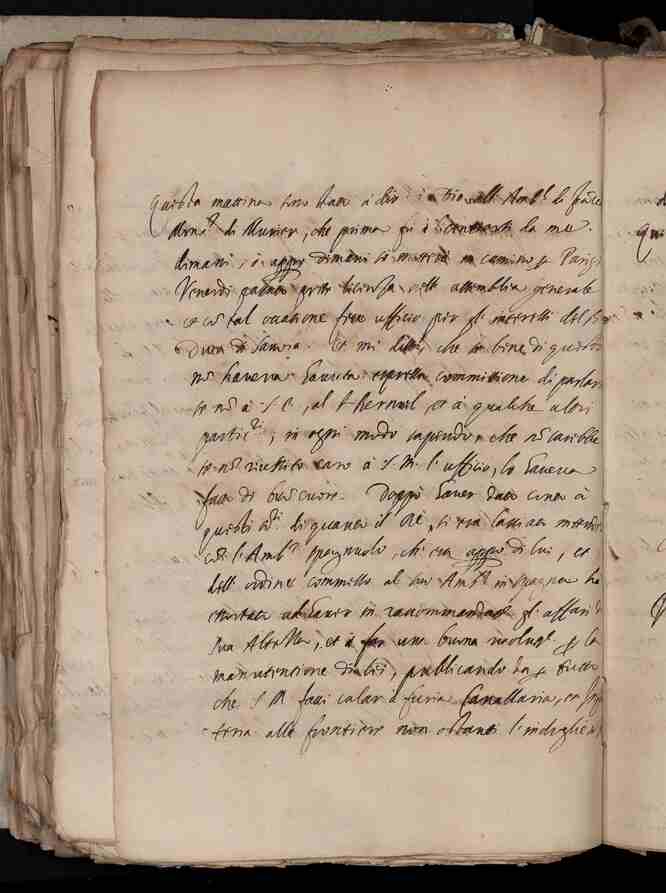 Questa mattina sono stato à dir à Dio all' Amb.r di fran
Mons.r di Metier, che prima fù à vedermi da me.
dimani, ò appo dimani si metterà in camino p Parigi
Venerdi passato prese licenza nell' assemblea generale
et cō tal occasione fece ufficio per gl' interessi del s
Duca di Savoia. Et mi disse, che se bene di questo
nō haveva havuto espressa commissione di parlar
se nō à S. E., al Bernvelt et à qualche altri
partic.ri; in ogni modo sapendo, che nō sarebbe
se nō riuscito caro à S. M. l' ufficio, lo haveva
fatto di buō cuore. Doppo haver dato conto à
questi SS.ri di quanto il Rè si era lassato intender
cō l' Amb.r spagnuolo, ch' era appo di lui, et
dell' ordine commesso al suo Amb.r in spagna ha
essortato ad haver in raccommandat.e gl' affari di
Sua Altezza, et à far una buona resolut.e p la
manutentione di lei, publicando hà p tutto
che S. M. facci calar à furia Cavallaria, et
teria alle frontiere non ostante l'